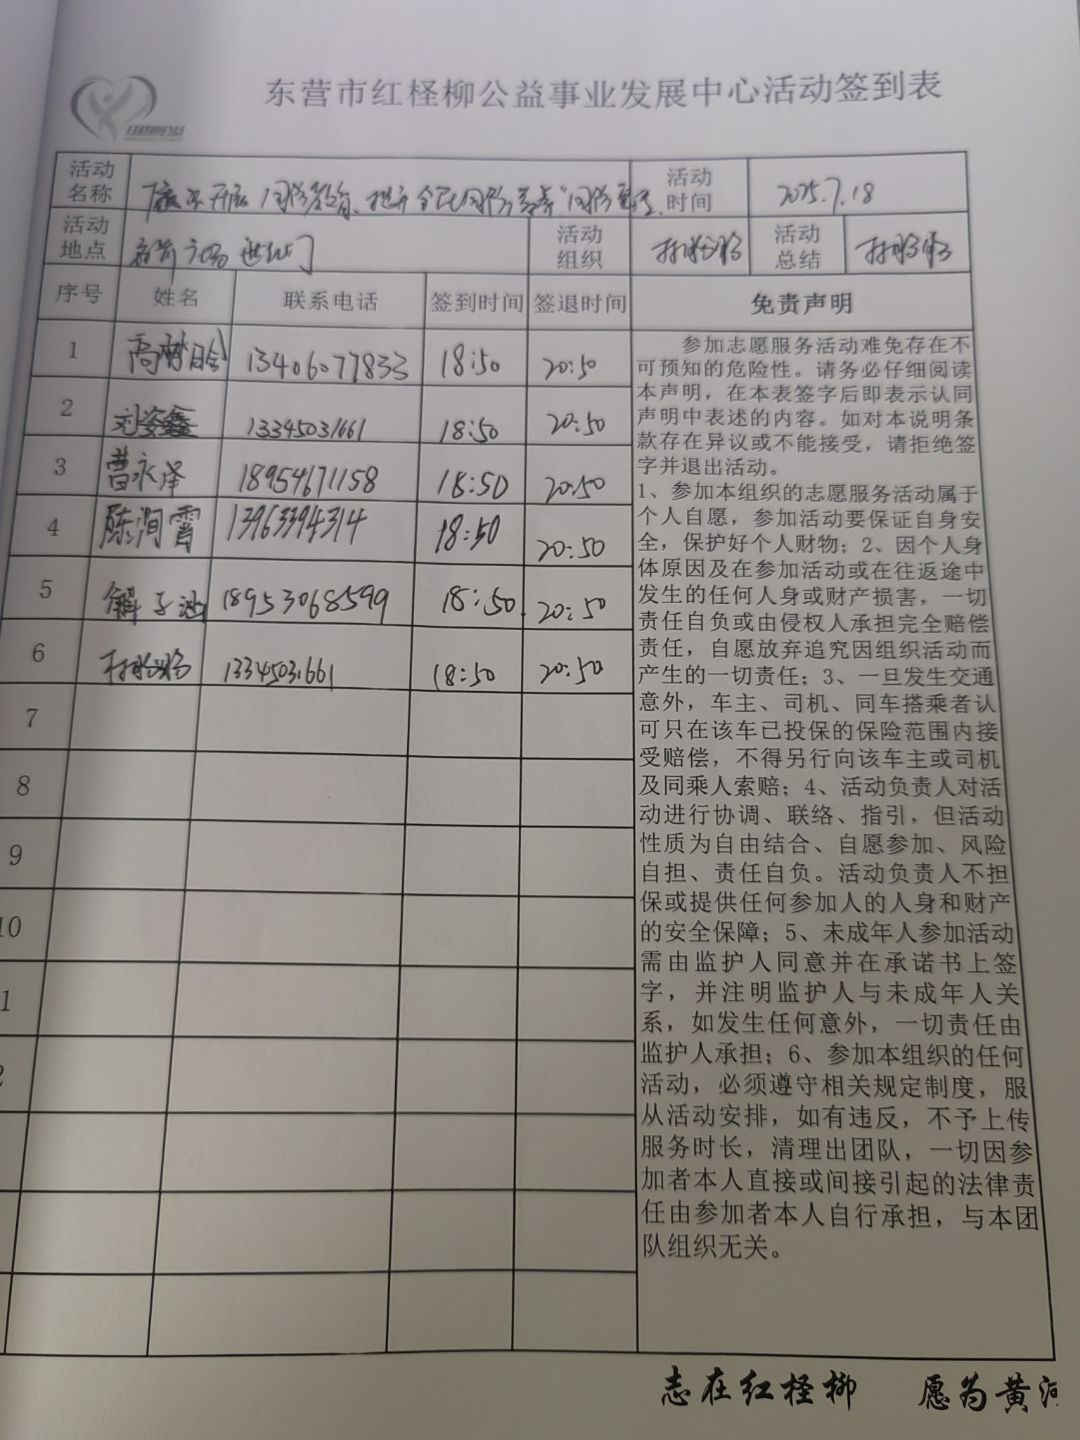 东营市红柽柳公益事业发展中心活动签到表
活动名称 活动时间 2025.7.18
活动地点 活动组织 活动总结
序号 姓名 联系电话 签到时间 签退时间 免责声明
1 13406077833 18:50 20:50
2 刘姿鑫 13345031661 18:50 20:50
3 曹永泽 18954671158 18:50 20:50
4 陈润霄 13963394314 18:50 20:50
5 18953068599 18:50 20:50
6 13345031661 18:50 20:50
7
8
9
10
1
2
参加志愿服务活动难免存在不
可预知的危险性。请务必仔细阅读
本声明，在本表签字后即表示认同
声明中表述的内容。如对本说明条
款存在异议或不能接受，请拒绝签
字并退出活动。
1、参加本组织的志愿服务活动属于
个人自愿，参加活动要保证自身安
全，保护好个人财物；2、因个人身
体原因及在参加活动或在往返途中
发生的任何人身或财产损害，一切
责任自负或由侵权人承担完全赔偿
责任，自愿放弃追究因组织活动而
产生的一切责任；3、一旦发生交通
意外，车主、司机、同车搭乘者认
可只在该车已投保的保险范围内接
受赔偿，不得另行向该车主或司机
及同乘人索赔；4、活动负责人对活
动进行协调、联络、指引，但活动
性质为自由结合、自愿参加、风险
自担、责任自负。活动负责人不担
保或提供任何参加人的人身和财产
的安全保障；5、未成年人参加活动
需由监护人同意并在承诺书上签
字，并注明监护人与未成年人关
系，如发生任何意外，一切责任由
监护人承担；6、参加本组织的任何
活动，必须遵守相关规定制度，服
从活动安排，如有违反，不予上传
服务时长，清理出团队，一切因参
加者本人直接或间接引起的法律责
任由参加者本人自行承担，与本团
队组织无关。
志在红柽柳 愿为黄河